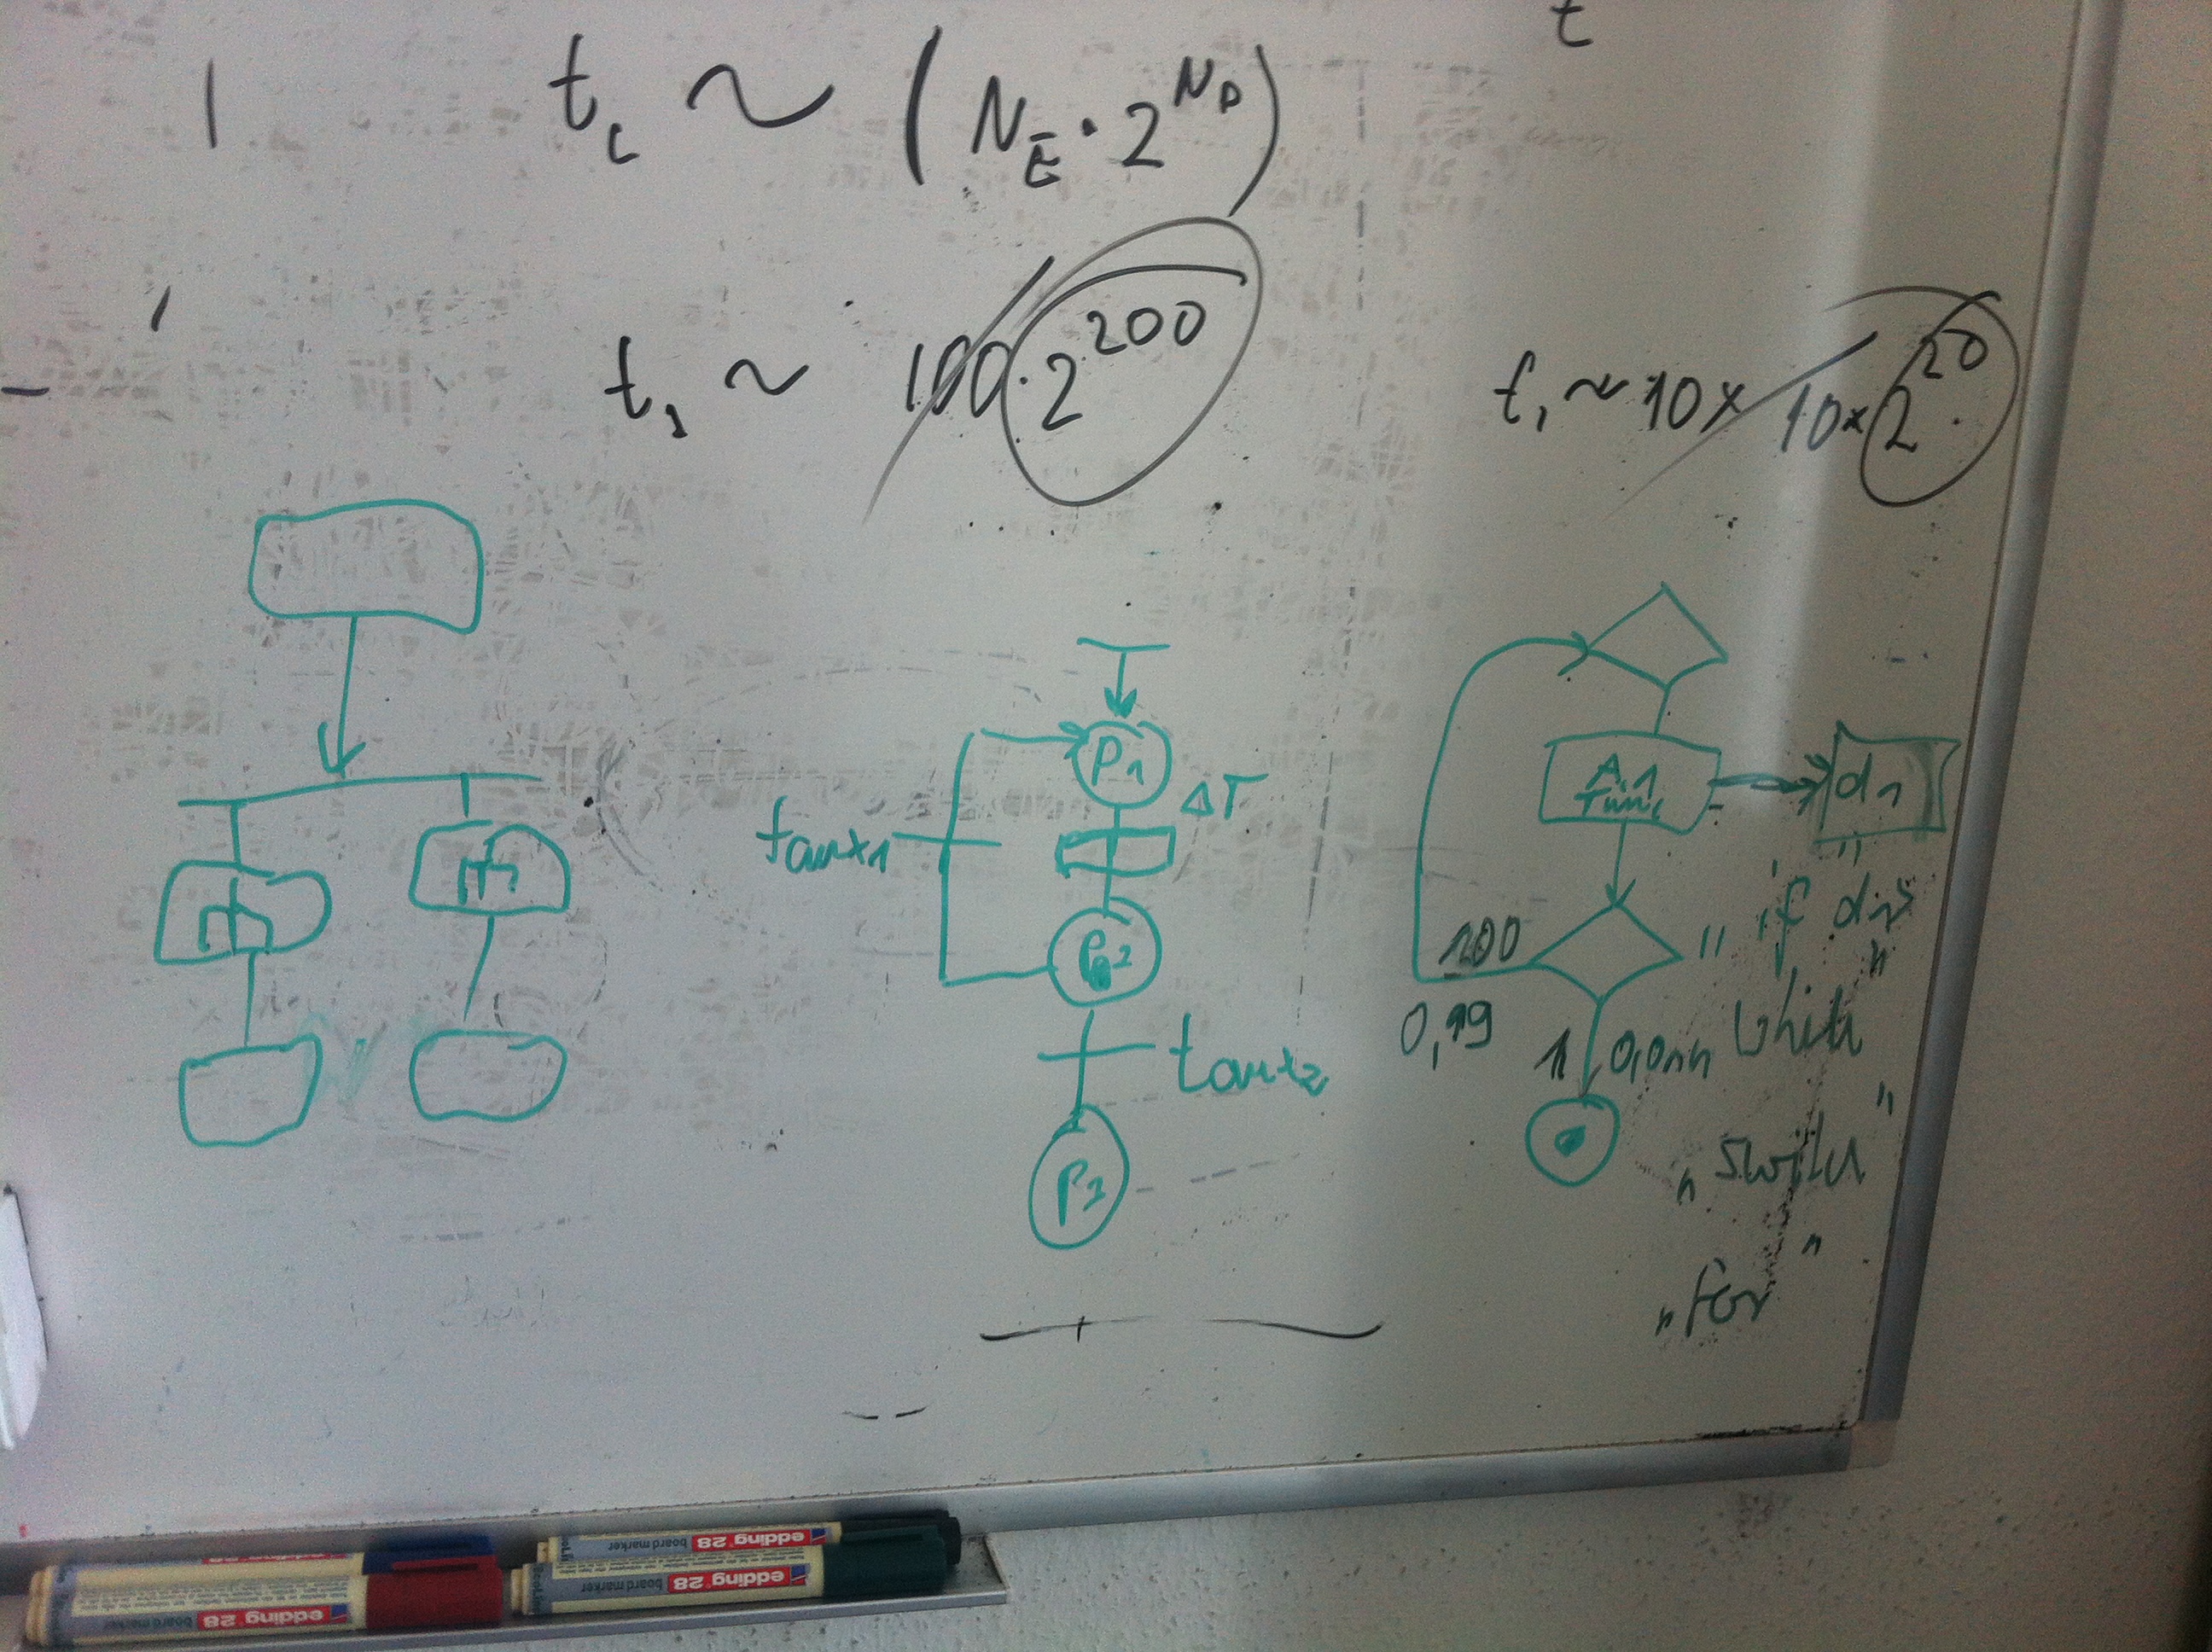 t
t_c ~ (N_E · 2^{N_D})
t_1 ~ 100 · 2^{200}
t_1 ~ 10 x 10 x 2^{20}
P1
ΔT
taux1
P2
taux2
A.1
func
d1
"if d1"
100
0,99
1
"switch"
"for"
edding 28
board marker
edding 28
board marker
edding 28
board marker